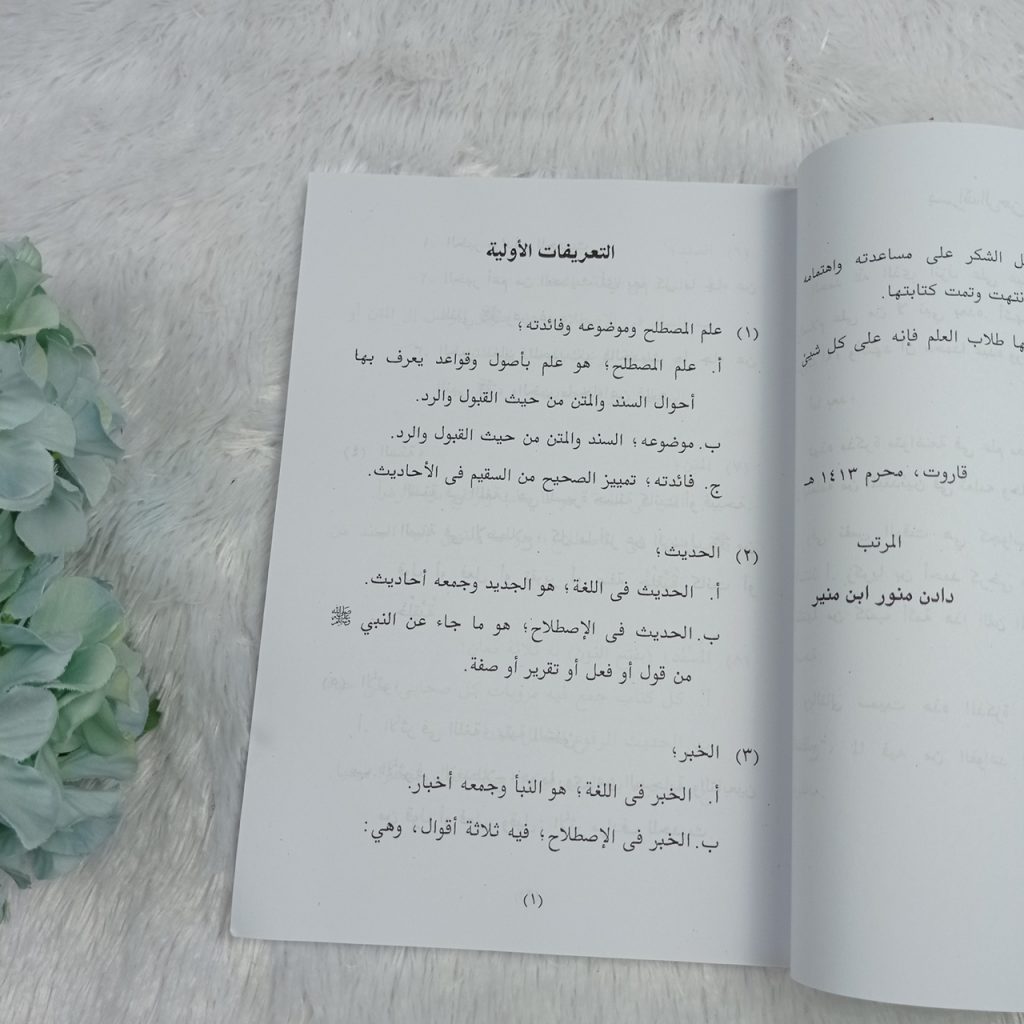 ل الشكر على مساعدته واهتمامه
نتهت وتمت كتابتها.
ها طلاب العلم فإنه على كل شيئ
قاروت، محرم ١٤١٣ هـ
المرتب
دادن منور ابن منير
التعريفات الأولية
(١) علم المصطلح وموضوعه وفائدته؛
أ. علم المصطلح؛ هو علم بأصول وقواعد يعرف بها
أحوال السند والمتن من حيث القبول والرد.
ب. موضوعه؛ السند والمتن من حيث القبول والرد.
ج. فائدته؛ تمييز الصحيح من السقيم فى الأحاديث.
(٢) الحديث؛
أ. الحديث فى اللغة؛ هو الجديد وجمعه أحاديث.
ب. الحديث فى الإصطلاح؛ هو ما جاء عن النبي ﷺ
من قول أو فعل أو تقرير أو صفة.
(٣) الخبر؛
أ. الخبر فى اللغة؛ هو النبأ وجمعه أخبار.
ب. الخبر فى الإصطلاح؛ فيه ثلاثة أقوال، وهي:
(١)